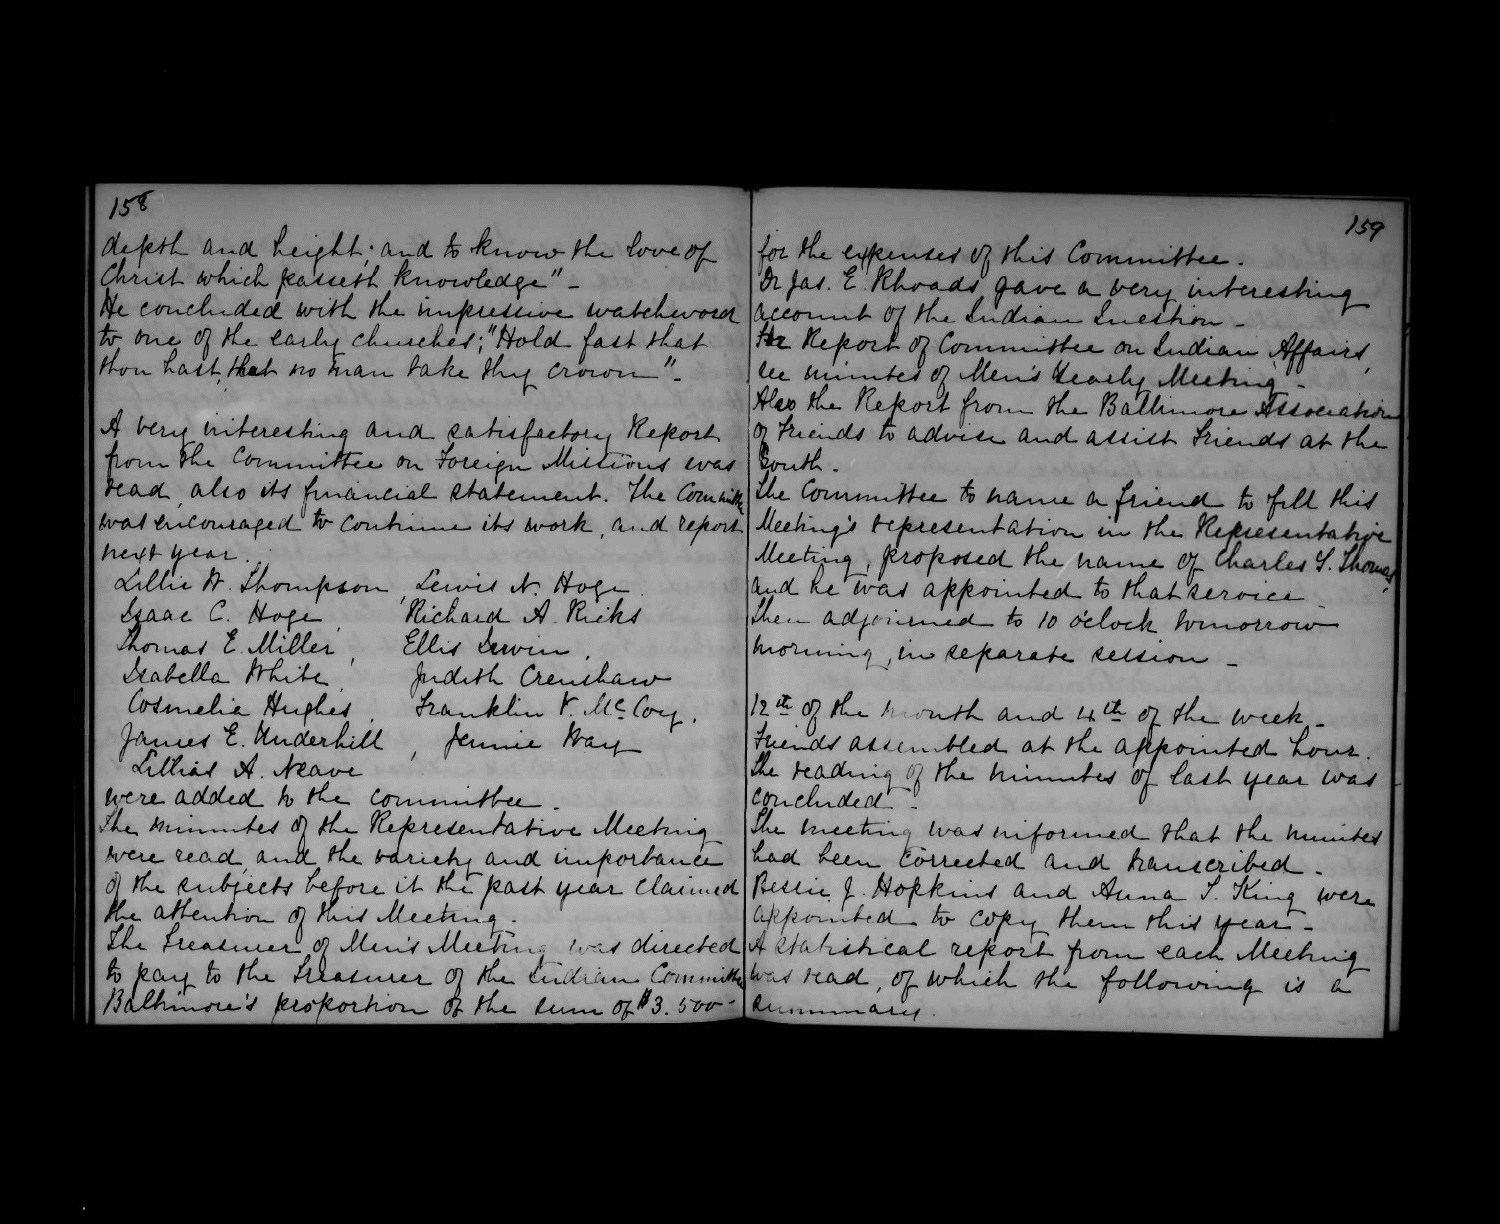 158
depth and height; and to know the love of
Christ which passeth knowledge" -
He concluded with the impressive watchword
to one of the early churches; "Hold fast that
thou hast, that no man take thy crown" -
A very interesting and satisfactory Report
from the Committee on Foreign Missions was
read, also its financial statement. The Committee
was encouraged to continue its work, and report
next year.
Lillie W. Thompson, Lewis N. Hoge
Isaac C. Hoge, Richard A. Ricks
Thomas E. Miller, Ellis Irwin,
Isabella White, Judith Crenshaw
Cosmelia Hughes, Franklin V. McCoy,
James E. Underhill, Jennie Way
Lillias A. Neave
were added to the committee.
The minutes of the Representative Meeting
were read, and the variety and importance
of the subjects before it the past year claimed
the attention of this Meeting.
The Treasurer of Men's Meeting was directed
to pay to the Treasurer of the Indian Committee
Baltimore's proportion of the sum of $3.500-
159
for the expenses of this Committee -
Dr Jas. E. Rhoads gave a very interesting
account of the Indian Question -
For Report of Committee on Indian Affairs,
see minutes of Men's Yearly Meeting -
Also the Report from the Baltimore Association
of Friends to advise and assist Friends at the
South -
The Committee to name a friend to fill this
Meeting's representation in the Representative
Meeting, proposed the name of Charles Y. Thomas,
and he was appointed to that service -
Then adjourned to 10 o'clock tomorrow
morning, in separate session -
12th of the month and 4th of the week -
Friends assembled at the appointed hour.
The reading of the minutes of last year was
concluded -
The meeting was informed that the minutes
had been corrected and transcribed -
Bessie J. Hopkins and Anna T. King were
appointed to copy them this year -
A statistical report from each Meeting
was read, of which the following is a
summary.